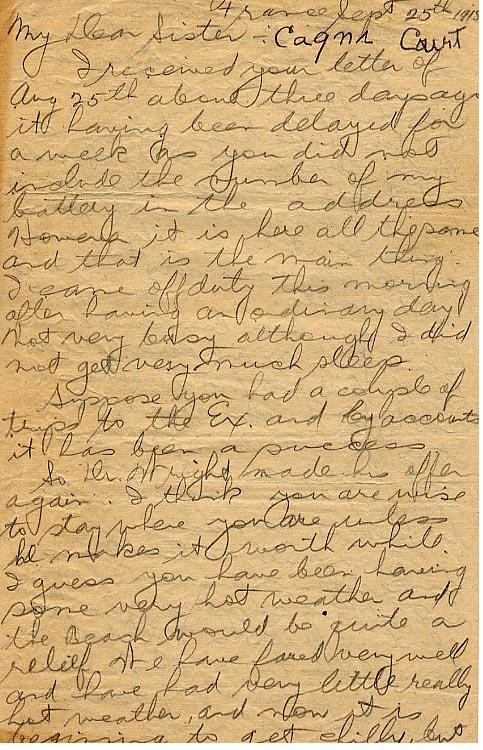 France Sept 25th 1918
My Dear Sister - Cagni Court
I received your letter of
Aug 25th about three days ago
it having been delayed for
a week as you did not
include the number of my
battery in the address
However it is here all the same
and that is the main thing.
I came off duty this morning
after having an ordinary day
not very busy although I did
not get very much sleep.
Suppose you had a couple of
trips to the Ex. and by accounts
it has been a success
So Dr. Wright made his offer
again. I think you are wise
to stay where you are unless
he makes it worth while.
I guess you have been having
some very hot weather and
the Beach would be quite a
relief. We have fared very well
and have had very little really
hot weather, and now it is
beginning to get chilly, but